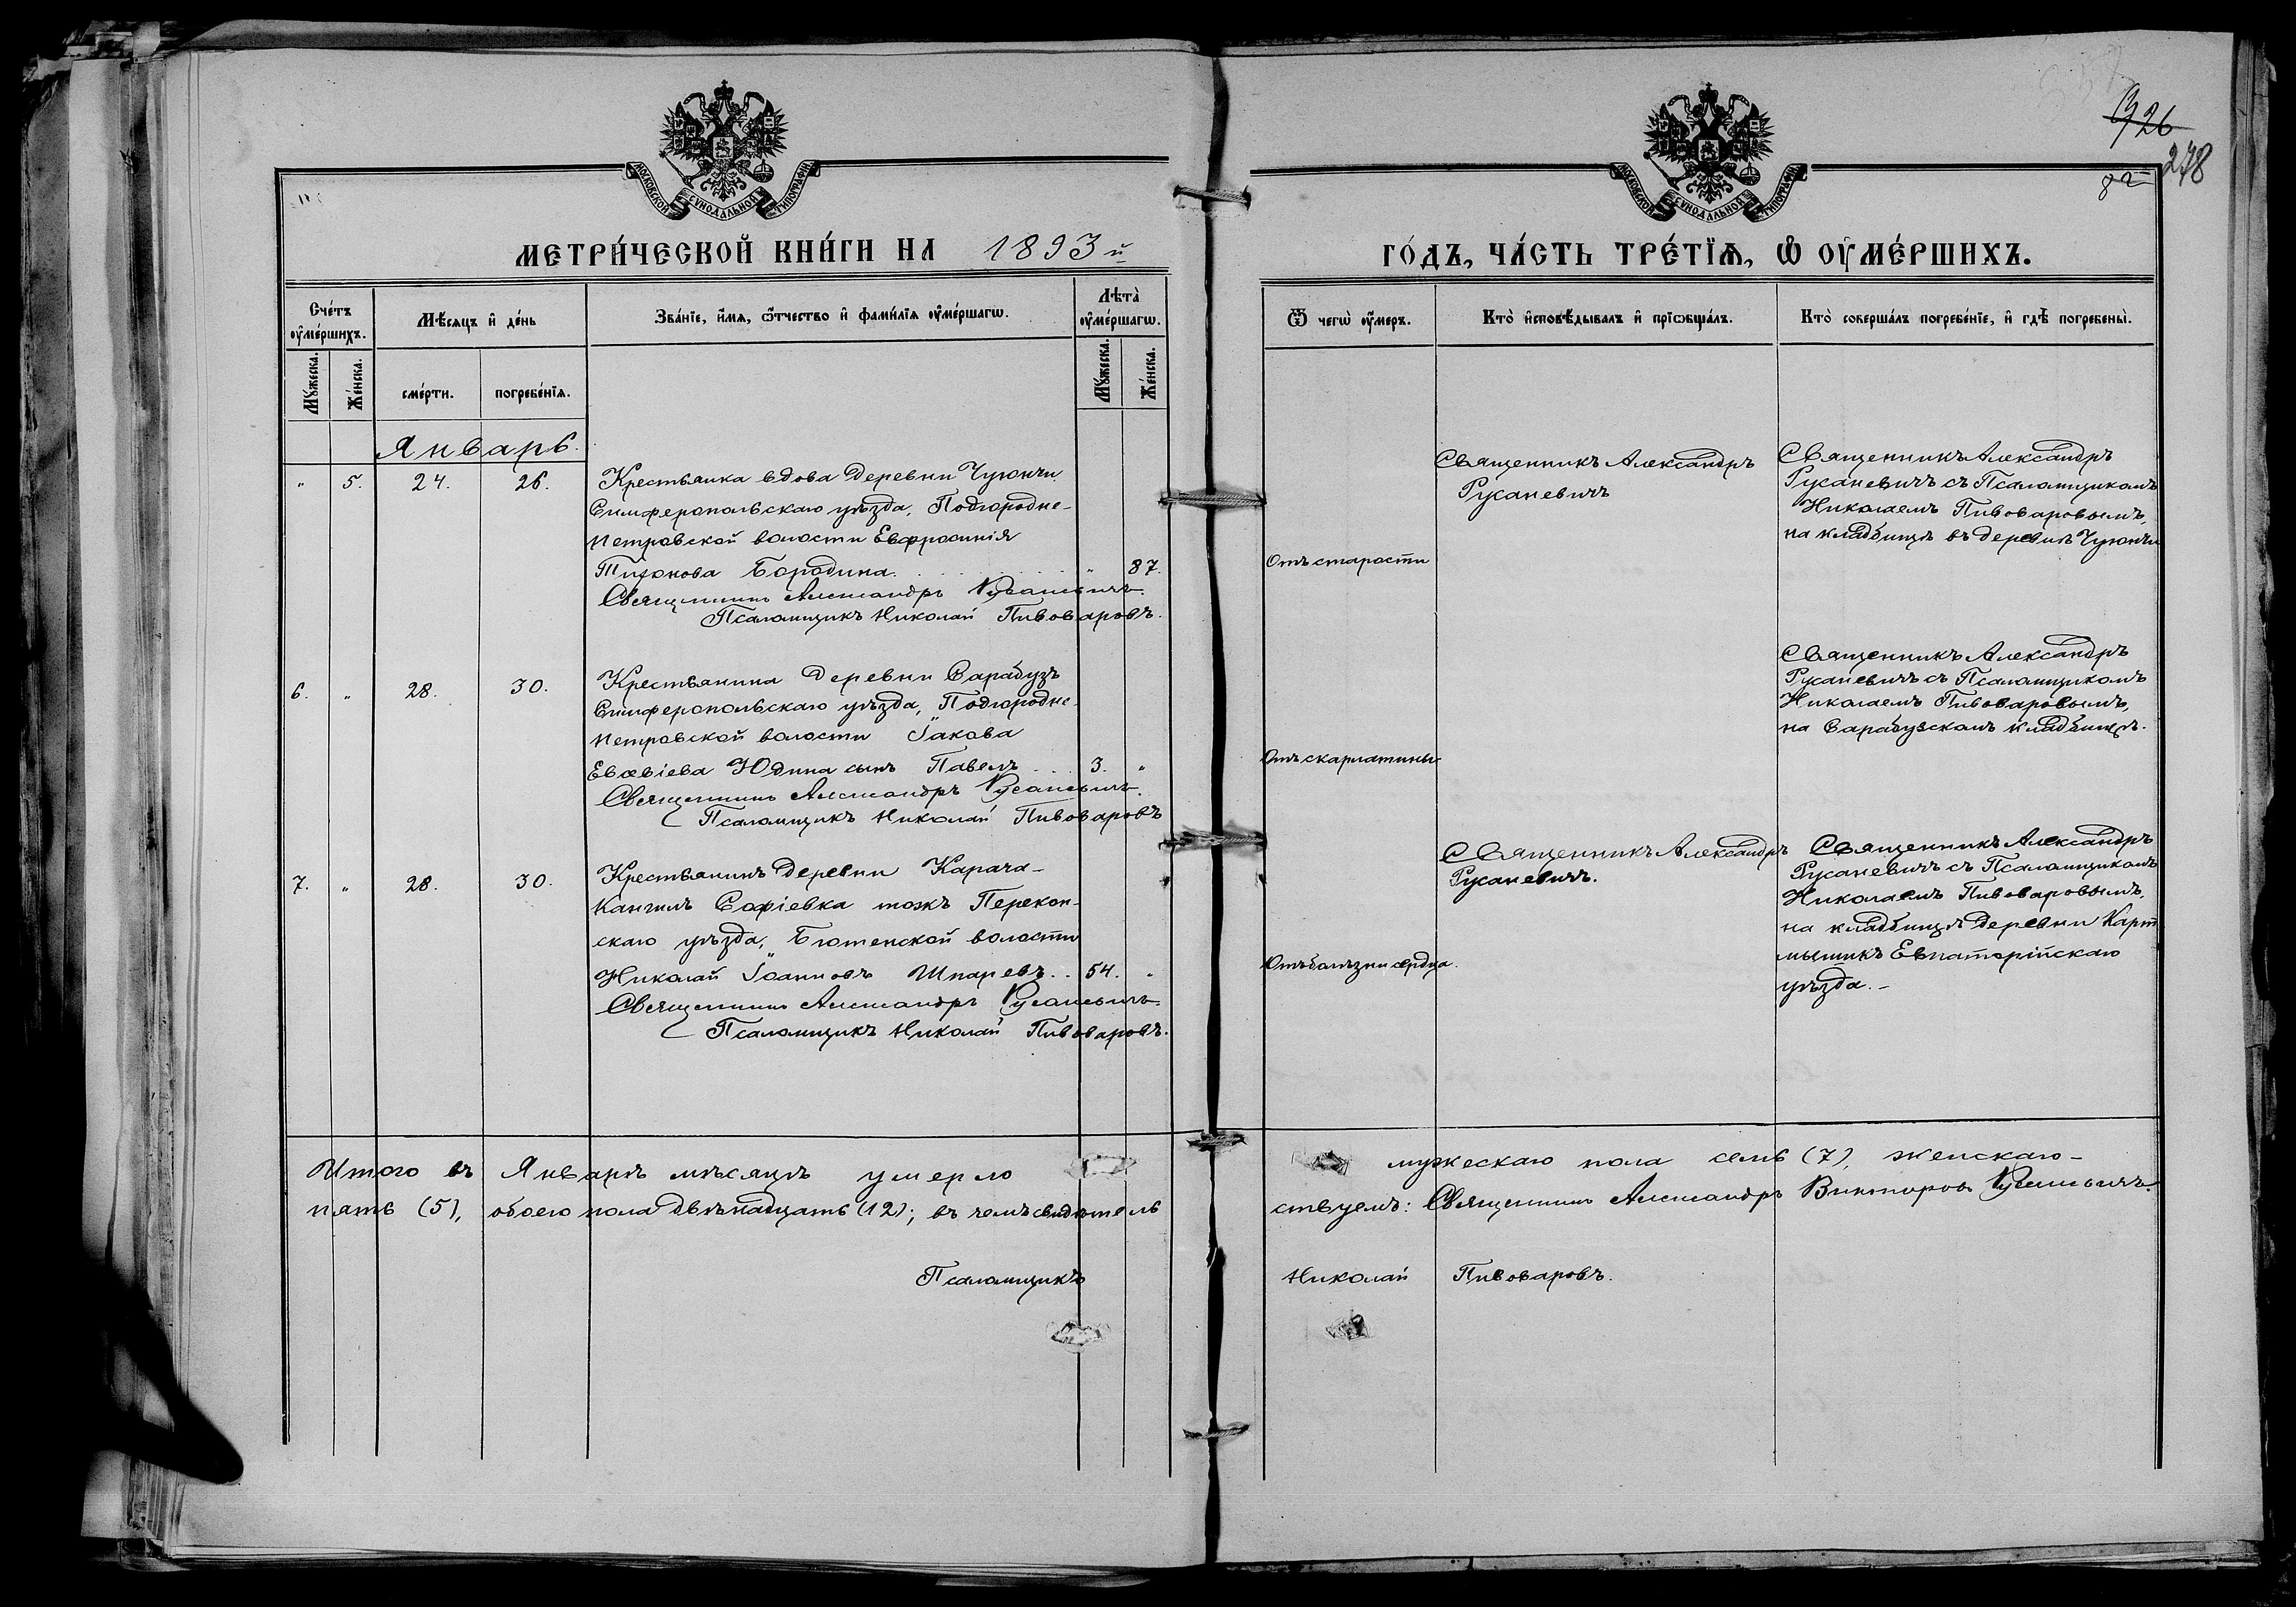 926
278
82
МОСКОВСКОЙ СѴНОДАЛЬНОЙ ТИПОГРАФІИ
МОСКОВСКОЙ СѴНОДАЛЬНОЙ ТИПОГРАФІИ
МЕТРИ́ЧЕСКОЙ КНИ́ГИ НА 1893 й
ГО́ДЪ, ЧА́СТЬ ТРЕ́ТЇѦ, Ѡ҆ ОУ҆МЕ́РШИХЪ.
Сче́тъ оу҆ме́ршихъ.
Мѣ́сѧцъ и҆ де́нь
Зва́нїе, и҆́мѧ, ѻ҆́тчество и҆ фами́лїѧ оу҆ме́ршагѡ.
Лѣта̀ оу҆ме́ршагѡ.
Мꙋ́жеска.
Же́нска.
сме́рти.
погребе́нїѧ.
Мꙋ́жеска.
Же́нска.
Ѿ чегѡ̀ оу҆́меръ.
Кто̀ и҆сповѣ́дывалъ и҆ прїѡбща́лъ.
Кто̀ соверша́лъ погребе́нїе, и҆ гдѣ̀ погребены̀.
Январь.
" 5. 24. 26.
Крестьянка вдова деревни Чуюнчи
Симферопольскаго уѣзда, Подгородне-
Петровской волости Евфросинія
Тихонова Бородина. " 87.
Священникъ Александръ Русаневичъ.
Псаломщикъ Николай Пивоваровъ.
Отъ старости
Священникъ Александръ
Русаневичъ
Священникъ Александръ
Русаневичъ съ Псаломщикомъ
Николаемъ Пивоваровымъ,
на кладбищѣ въ деревнѣ Чуюнчи
6. " 28. 30.
Крестьянина деревни Сарабузъ
Симферопольскаго уѣзда, Подгородне-
Петровской волости Іакова
Евсевіева Юдина сынъ Павелъ 3. "
Священникъ Александръ Русаневичъ.
Псаломщикъ Николай Пивоваровъ
Отъ скарлатины
Священникъ Александръ
Русаневичъ съ Псаломщикомъ
Николаемъ Пивоваровымъ,
на Сарабузскомъ кладбищѣ.
7. " 28. 30.
Крестьянинъ деревни Карача-
Кангилъ Софіевка тожъ Перекоп-
скаго уѣзда, Бютенской волости
Николай Іоанновъ Шпаревъ.. 54. "
Священникъ Александръ Русаневичъ.
Псаломщикъ Николай Пивоваровъ.
Отъ болѣзни сердца.
Священникъ Александръ
Русаневичъ.
Священникъ Александръ
Русаневичъ съ Псаломщикомъ
Николаемъ Пивоваровымъ,
на кладбищѣ деревни Карт
мышикъ Евпаторійскаго
уѣзда.-
Итого въ Январѣ мѣсяцѣ умерло мужескаго пола семь (7), женскаго-
пять (5), обоего пола двѣнадцать (12); въ чемъ свидѣтель
ствуемъ: Священникъ Александръ Викторовъ Русаневичъ.
Псаломщикъ Николай Пивоваровъ.